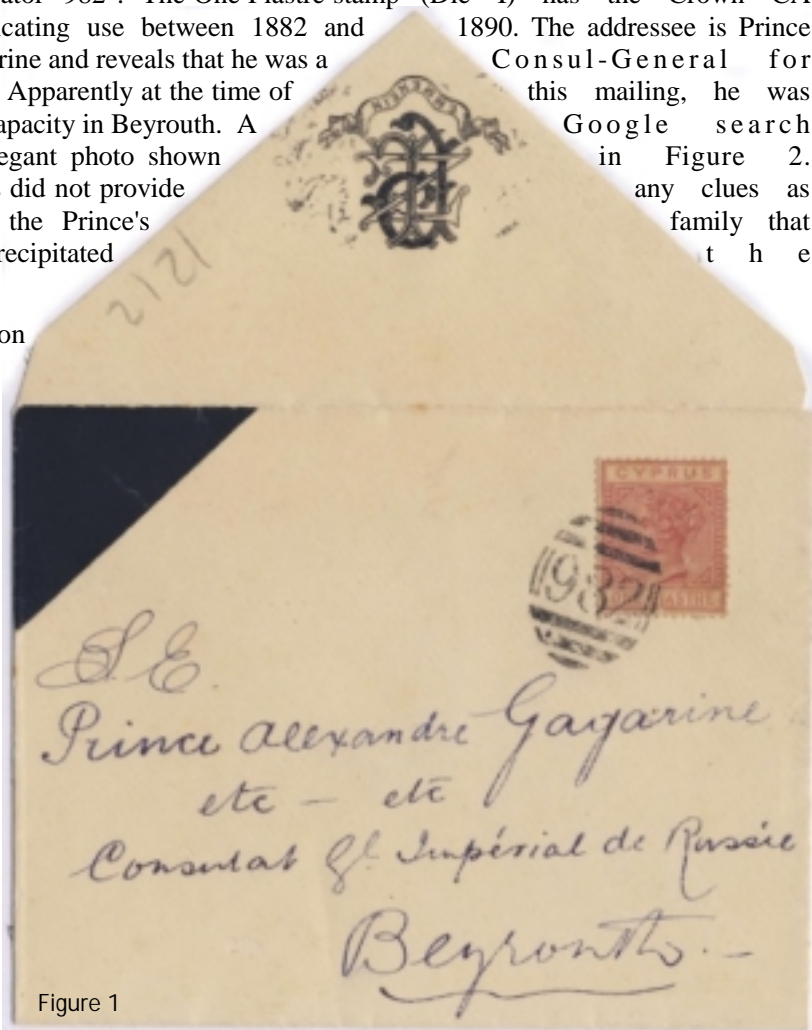 ator 982". The One Piastre stamp (Die I) has the Crown CA
icating use between 1882 and 1890. The addressee is Prince
rine and reveals that he was a Consul-General for
Apparently at the time of this mailing, he was
apacity in Beyrouth. A Google search
egant photo shown in Figure 2.
s did not provide any clues as
the Prince's family that
recipitated the
on
2121
CYPRUS
982
S. E.
Prince Alexandre Gagarine
etc — etc
Consulat Gl. Impérial de Russie
Beyrouth. —
Figure 1